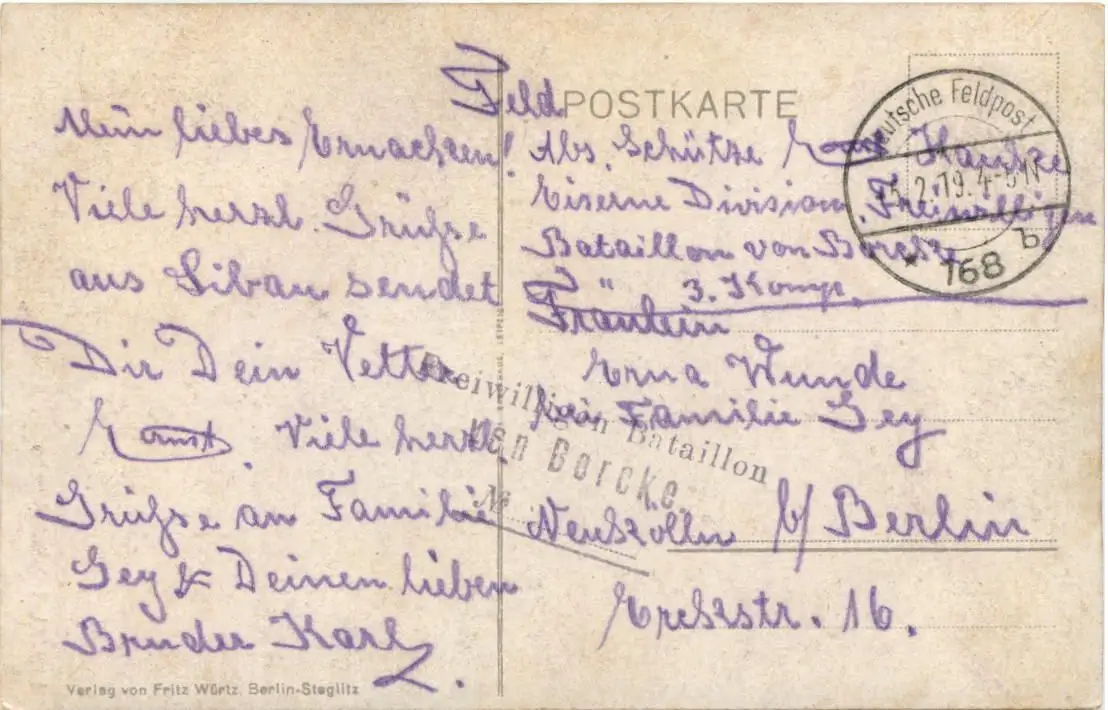 Mein liebes Ernachen!
Viele herzl. Grüße
aus Libau sendet
Dir Dein Vetter
Ernst. Viele herzl.
Grüße an Familie
Gey & Deinen lieben
Bruder Karl.
Verlag von Fritz Würtz, Berlin-Steglitz
Feld POSTKARTE
Abs. Schütze Ernst
Eiserne Division, Freiwilligen
Bataillon von Borcke
3. Komp.
Fräulein
Erna Wunde
bei Familie Gey
Neukölln b/ Berlin
Erckstr. 16.
Deutsche Feldpost
2.19. 4-5 N
* 168 b
Freiwilligen Bataillon
von Borcke.
№